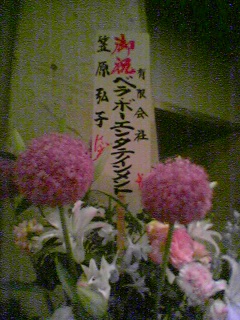 御祝
有限会社
ベラボーエンタテインメント
笠原弘子